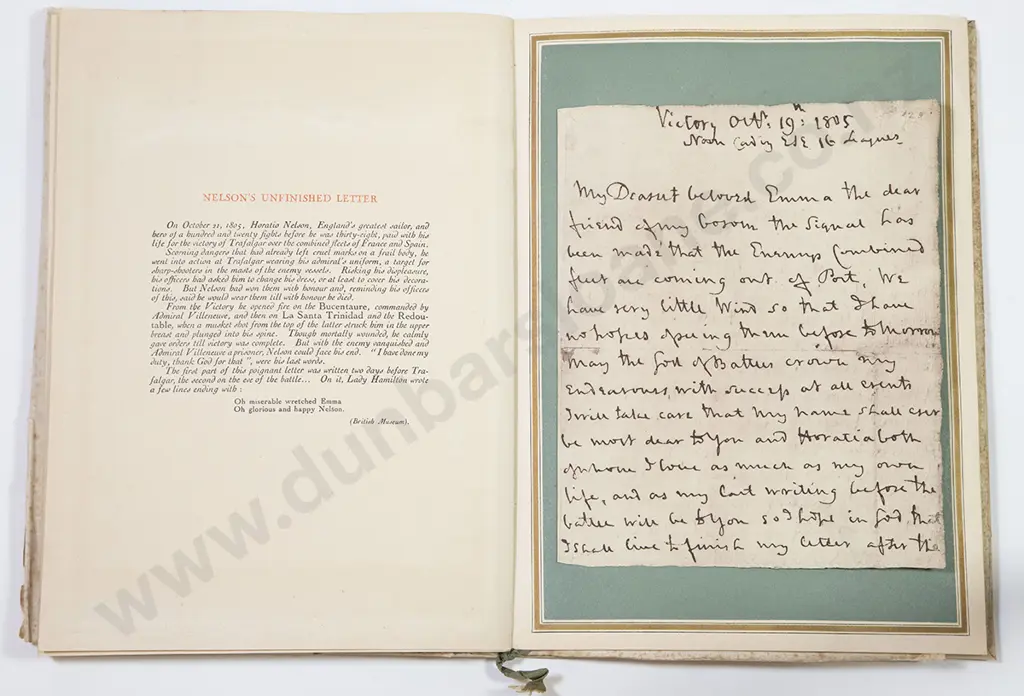 NELSON'S UNFINISHED LETTER
On October 21, 1805, Horatio Nelson, England's greatest sailor, and
hero of a hundred and twenty fights before he was thirty-eight, paid with his
life for the victory of Trafalgar over the combined fleets of France and Spain.
Scorning dangers that had already left cruel marks on a frail body, he
went into action at Trafalgar wearing his admiral's uniform, a target for
sharp-shooters in the masts of the enemy vessels. Risking his displeasure,
his officers had asked him to change his dress, or at least to cover his decora-
tions. But Nelson had won them with honour and, reminding his officers
of this, said he would wear them till with honour he died.
From the Victory he opened fire on the Bucentaure, commanded by
Admiral Villeneuve, and then on La Santa Trinidad and the Redou-
table, when a musket shot from the top of the latter struck him in the upper
breast and plunged into his spine. Though mortally wounded, he calmly
gave orders till victory was complete. But with the enemy vanquished and
Admiral Villeneuve a prisoner, Nelson could face his end. "I have done my
duty, thank God for that", were his last words.
The first part of this poignant letter was written two days before Tra-
falgar, the second on the eve of the battle... On it, Lady Hamilton wrote
a few lines ending with:
Oh miserable wretched Emma
Oh glorious and happy Nelson.
(British Museum).
Victory Octr. 19th: 1805
Noon Cadiz ESE 16 Leagues
My Dearest beloved Emma the dear
friend of my bosom the Signal has
been made that the Enemys Combined
fleet are coming out of Port, We
have very little Wind so that I have
no hopes of seeing them before tomorrow
May the God of Battles crown my
Endeavours with success at all events
I will take care that my name shall ever
be most dear to You and Horatia both
of whom I love as much as my own
life, and as my last writing before the
battle will be to You so I hope in God that
I shall live to finish my letter after the
www.dunbarsloane.co.nz